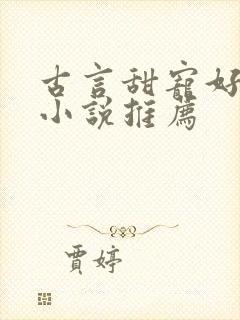 古言甜寵好
小說推薦
賈婷